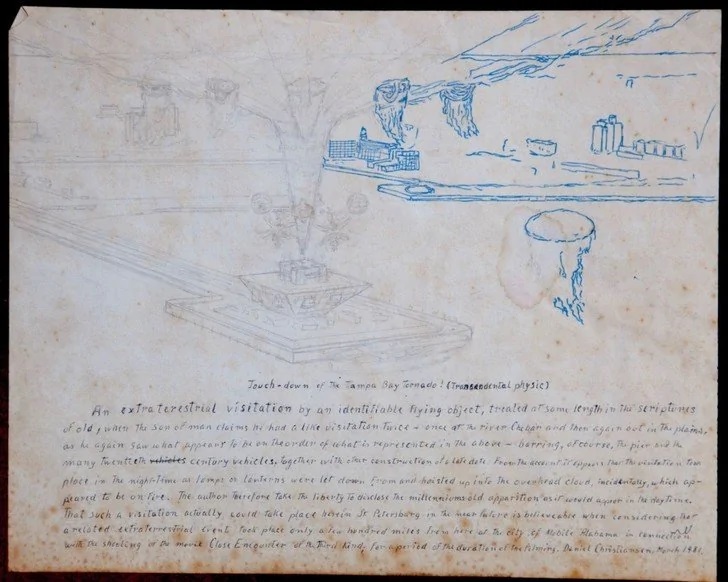 Touch-down of the Tampa Bay Tornado! (Transendental physic)
An extraterestrial visitation by an identifiable flying object, treated at some length in the scriptures
of old, when the Son of man claims he had a like visitation twice - once at the river Cebar and then again out in the plains,
as he again saw what appeart to be on the order of what is represented in the above - barring, of course, the pier and the
many twenteth vehicles century vehicles, together with other construction of a late date. From the account it appears that the visitation took
place in the night-time as lamps or lanterns were let down from and hoisted up into the overhead cloud, incidentally, which ap-
peared to be on fire. The author therefore take the liberty to disclose the millenniums old apparition as it would appear in the daytime.
That such a visitation actually could take place here in St. Petersburg in the near future is believeable when considering that
a related extraterrestrial event took place only a few hundred miles from here at the city of Mobile Alabama in connection
with the shooting of the movie Close Encounter of the Third Kind, for a period of the duration of the filming. Daniel Christiansen, March 1981.